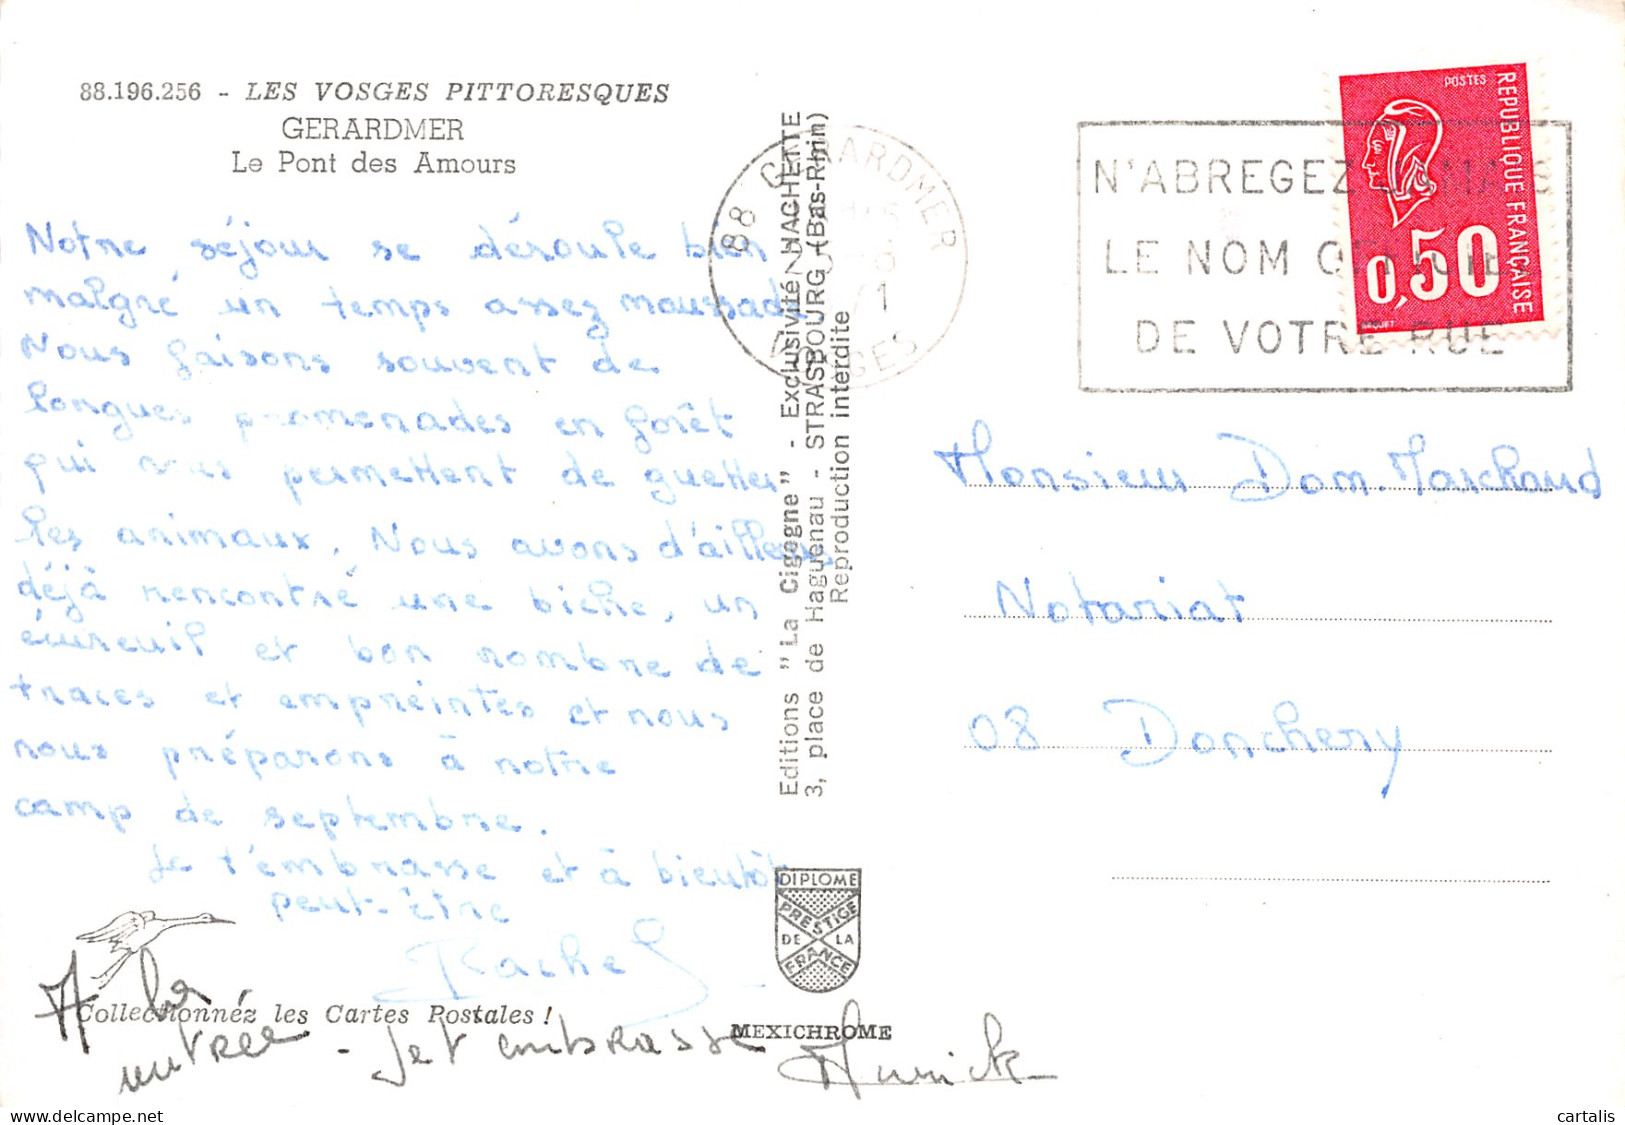 88.196.256 - LES VOSGES PITTORESQUES
GERARDMER
Le Pont des Amours
Notre séjour se déroule bien
malgré un temps assez maussade
Nous faisons souvent de
longues promenades en forêt
qui nous permettent de guetter
les animaux. Nous avons d'ailleurs
déjà rencontré une biche, un
écureuil et bon nombre de
traces et empreintes et nous
nous préparons à notre
camp de septembre.
Je t'embrasse et à bientôt
peut-être
Rachel
A la
rentrée - Je t'embrasse Annick
Collectionnez les Cartes Postales !
Editions "La Cigogne" - Exclusivité HACHETTE
3, place de Haguenau - STRASBOURG (Bas-Rhin)
Reproduction interdite
DIPLOME
PRESTIGE
DE LA
FRANCE
MEXICHROME
88 GERARDMER
VOSGES
N'ABREGEZ JAMAIS
LE NOM
DE VOTRE RUE
POSTES
REPUBLIQUE FRANÇAISE
0,50
BEQUET
Monsieur Dom. Marchand
Notariat
08 Donchery
cartalis